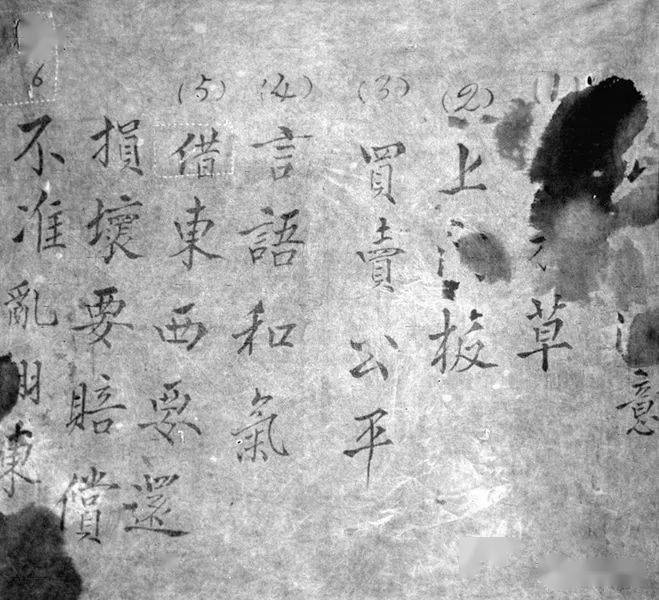 意
(1)草
(2)上板
(3)買賣公平
(4)言語和氣
(5)借東西要還
損壞要賠償
6不准亂用東